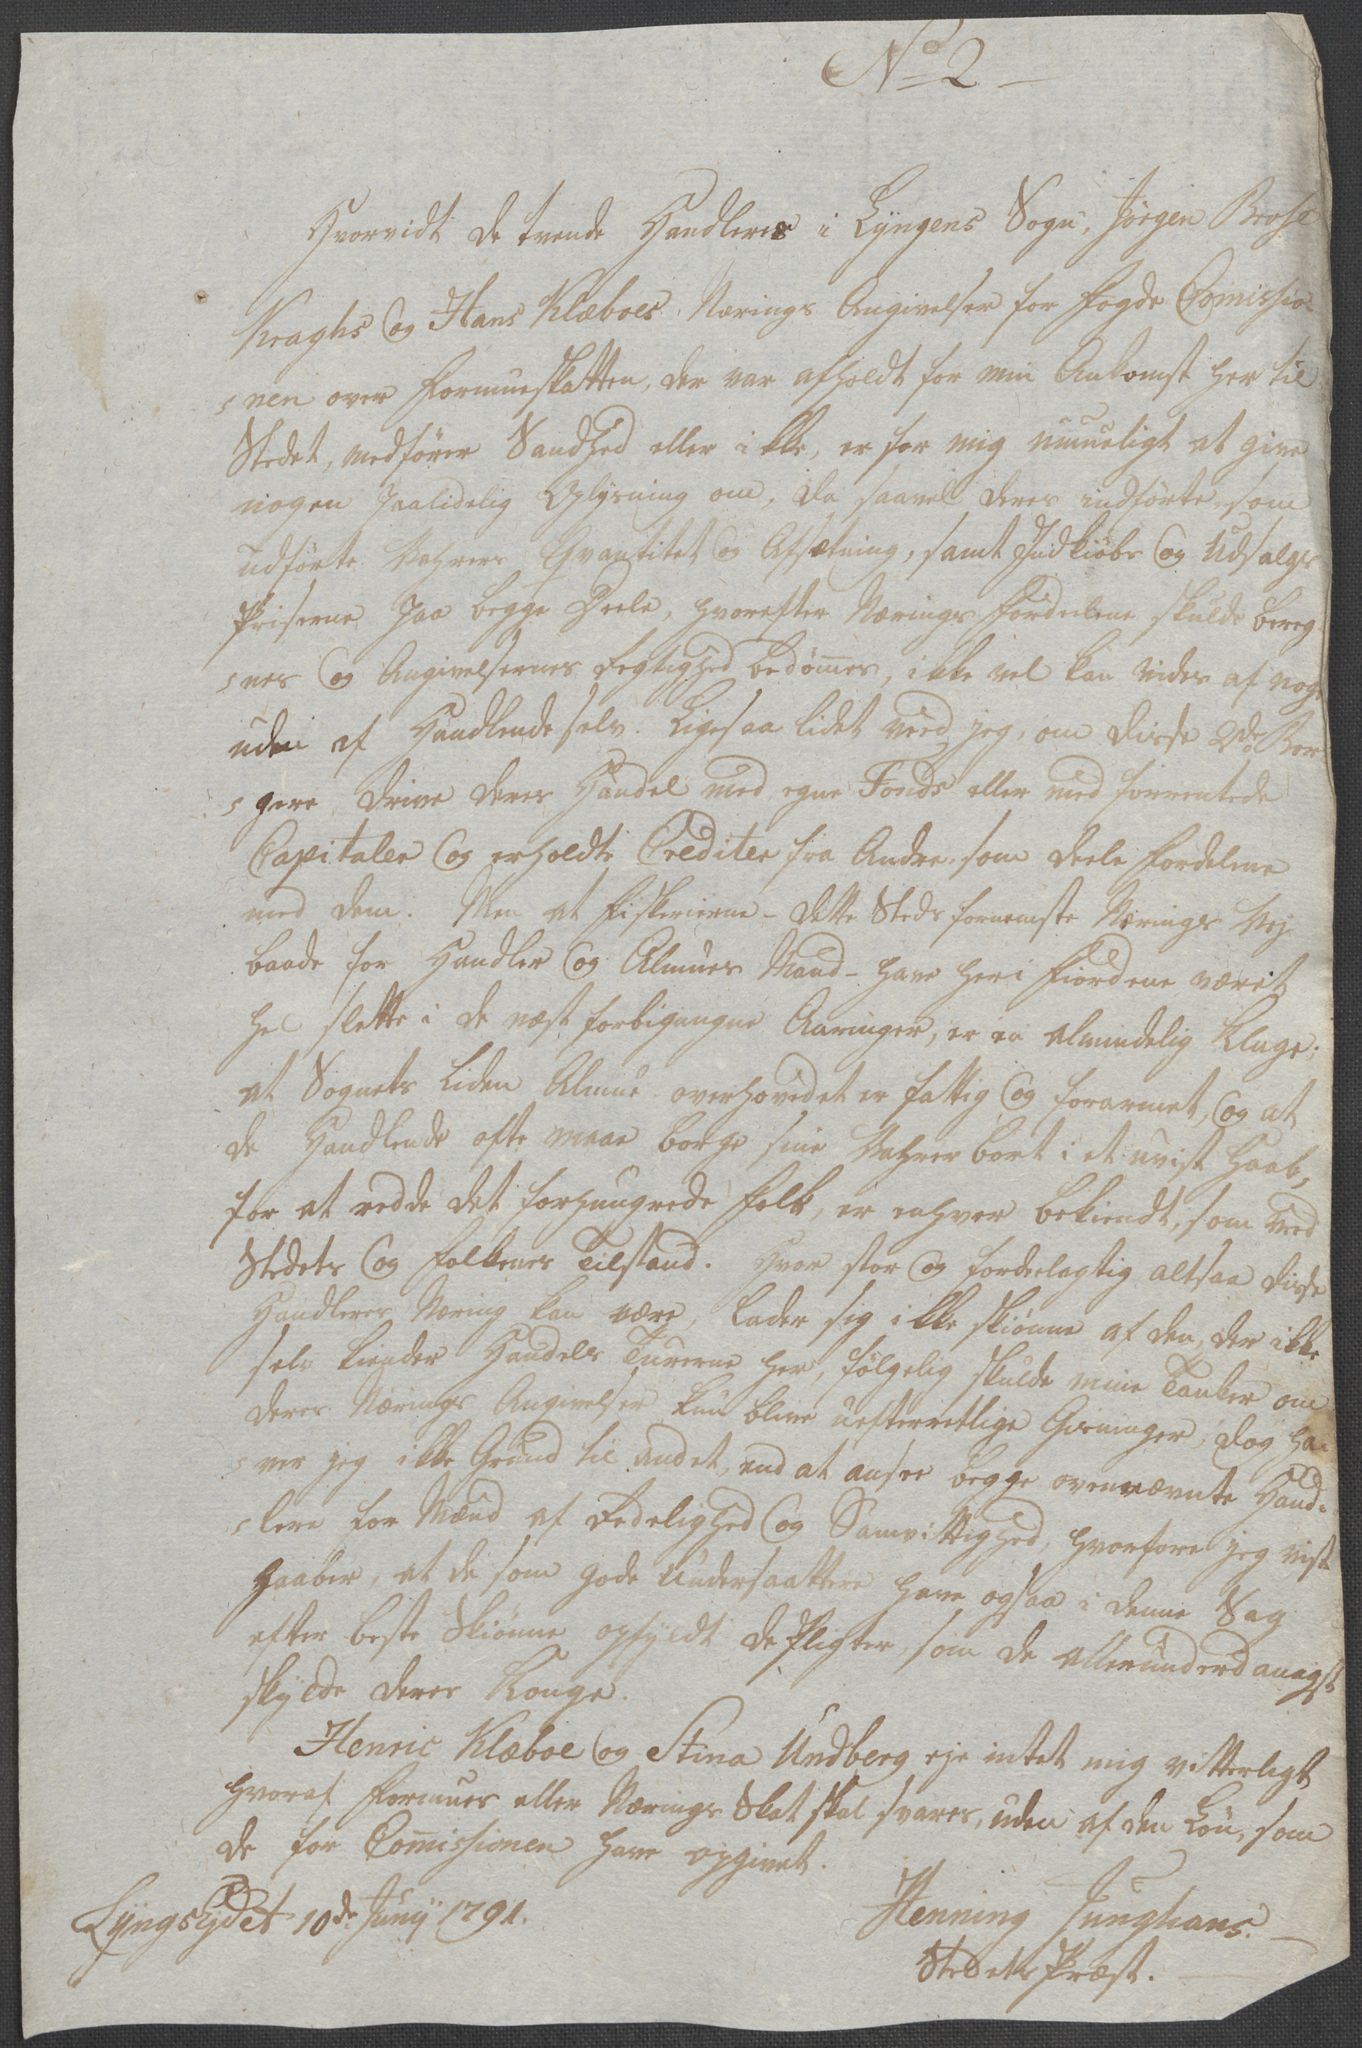 No 2
Hvorvidt de tvende Handlere i Lyngens Sogn, Jörgen
Kraghs og Hans Klæboes Nærings Angivelser for Fogde Comissio-
nen over Formueskatten, der var afholdt for min Ankomst her til
Stedet, medfører Sandhed eller ikke, er for mig umueligt at give
nogen paalidelig Oplysning om, da saavel deres indførte som
udførte Vahrers Qvantitet og Afsætning, samt Indkiøbs og Udsalgs
Priserne paa begge Deele, hvorefter Nærings Fordeelene skulde bereg-
nes og Angivelsernes Rigtighed bedømmes, ikke vel kan vides af nogen
uden af Handlende selv. Ligesaa lidet veed jeg, om disse 2de Bor-
gere drive deres Handel med egne Fonds eller med forrentede
Capitaler og erholdte Crediter fra Andre som deele Fordelene
med dem. Men at Fiskerierne - dette Steds fornemste Nærings Vej
baade for Handler og Almues Mand - have her i Fiordene været
hel slette i de næst forbigangne Aaringer, er en almindelig Klage;
at Sognets Liden Almue overhovedet er fattig og forarmet, og at
de Handlende ofte maae borge sine Vahrer bort i et uvist Haab,
for at redde det forhungrede Folk, er enhver bekiendt, som veed
Stedets og Folkenes Tilstand. Hvor stor og fordeelagtig altsaa disse
Handleres Næring kan være, lader sig ikke skiønne af den, der ikke
selv kiender Handels Turerne her, følgelig skulde mine Tanker om
deres Nærings Angivelser kun blive uefterretlige Gisninger; dog ha-
ver jeg ikke Grund til andet, end at ansee begge ovennævnte Hand-
lere for Mænd af Redelighed og Samvittighed, hvorfore jeg vist
haaber, at de som gode Undersaattere have ogsaa i denne Sag
efter beste Skiønne opfyldt de Pligter, som de allerunderdanigst
skylde deres Konge.
Henric Klæboe og Stina Undberg eje intet mig vitterligt
hvoraf Formues eller Nærings Skat skal svares, uden af den Løn, som
de for Comissionen have opgivet.
Lyngseydet 10de Junij 1791.
Henning Junghans.
Stedets Præst.